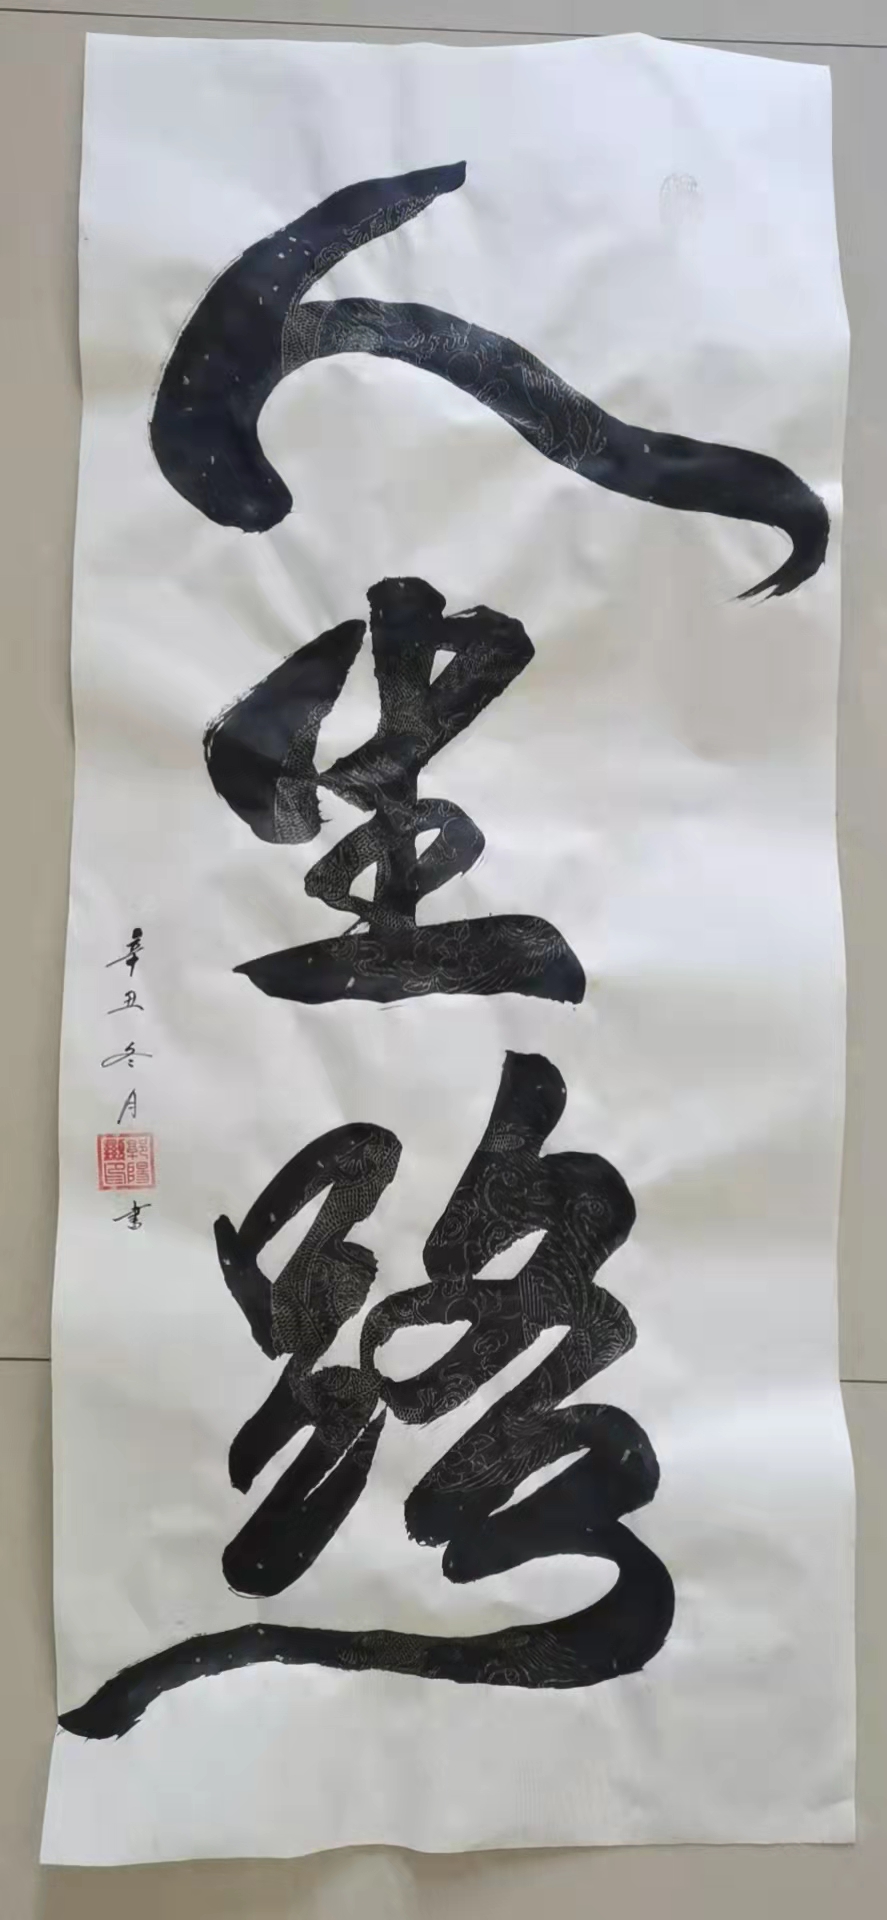 人生路
辛丑冬月
书